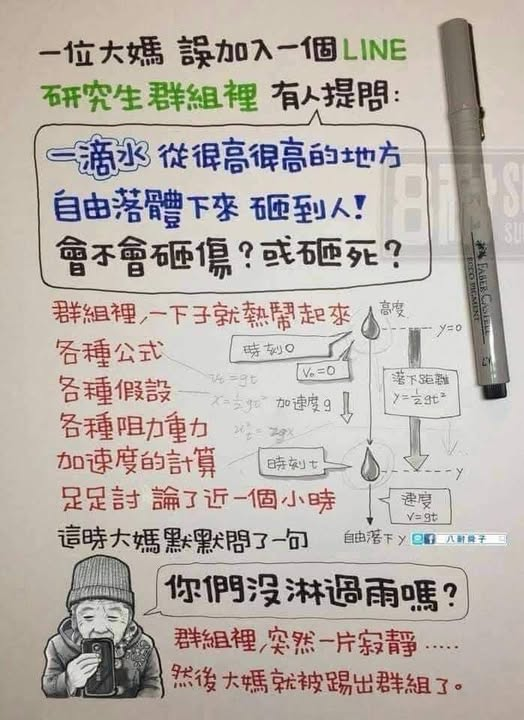 一位大媽 誤加入一個LINE
研究生群組裡 有人提問:
一滴水 從很高很高的地方
自由落體下來 砸到人!
會不會砸傷?或砸死?
群組裡,一下子就熱鬧起來
各種公式
各種假設
各種阻力重力
加速度的計算
足足討論了近一個小時
高度
時刻0
y=0
V₀=0
v₀=gt
x=½gt²
加速度g
落下距離
y=½gt²
時刻t
y
速度
v=gt
自由落下y
八耐舜子
這時大媽默默問了一句
你們沒淋過雨嗎?
群組裡,突然一片寂靜.....
然後大媽就被踢出群組了。
FABER-CASTELL
ECCO PIGMENT